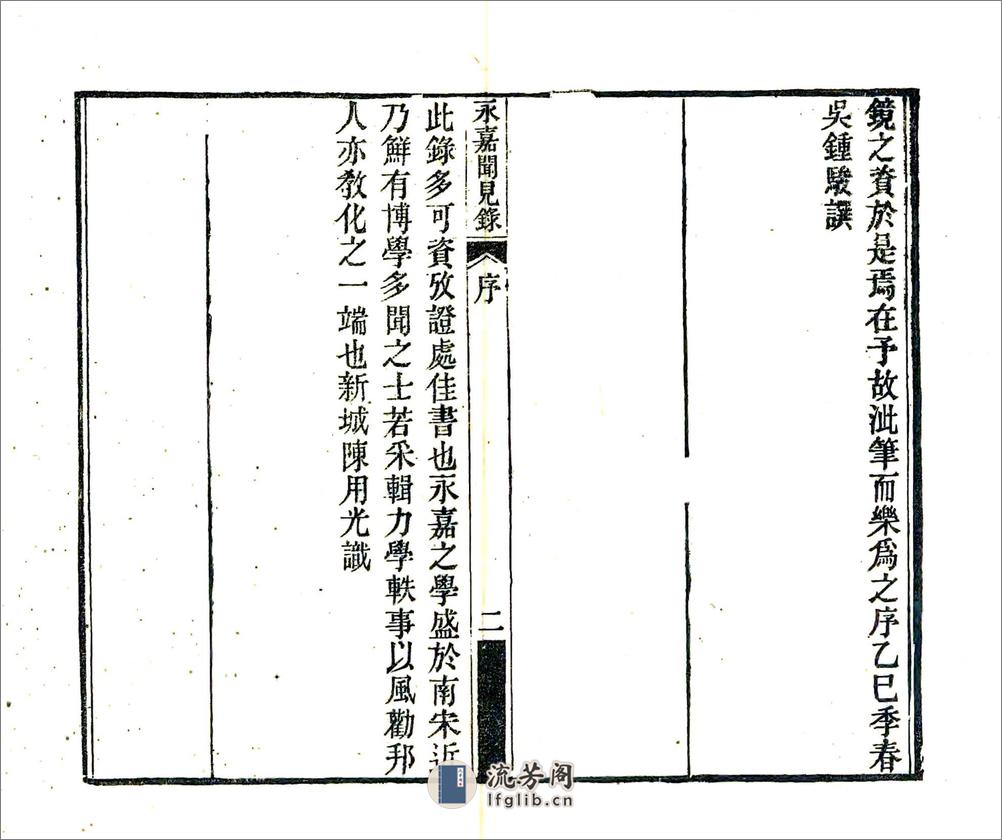 鏡之資於是焉在予故泚筆而樂爲之序乙巳季春
吳鍾駿譔
永嘉聞見錄 序 二
此錄多可資攷證處佳書也永嘉之學盛於南宋近
乃鮮有博學多聞之士若采輯力學軼事以風勸邦
人亦敎化之一端也新城陳用光識
流芳阁
lfglib.cn